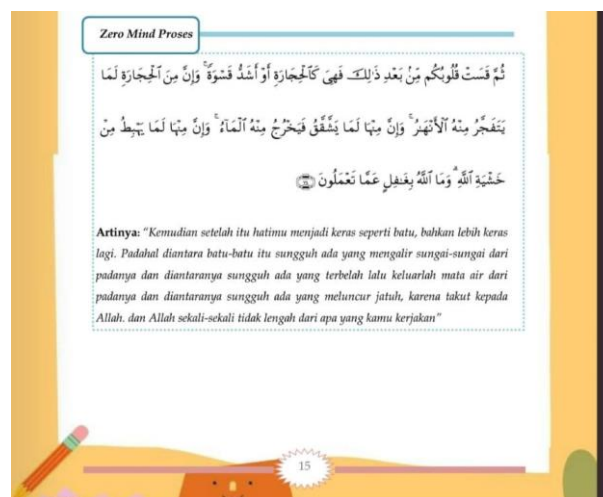 Zero Mind Proses
ثُمَّ قَسَتْ قُلُوبُكُم مِّنۢ بَعْدِ ذَٰلِكَ فَهِىَ كَٱلْحِجَارَةِ أَوْ أَشَدُّ قَسْوَةً ۚ وَإِنَّ مِنَ ٱلْحِجَارَةِ لَمَا
يَتَفَجَّرُ مِنْهُ ٱلْأَنْهَـٰرُ ۚ وَإِنَّ مِنْهَا لَمَا يَشَّقَّقُ فَيَخْرُجُ مِنْهُ ٱلْمَآءُ ۚ وَإِنَّ مِنْهَا لَمَا يَهْبِطُ مِنْ
خَشْيَةِ ٱللَّهِ ۗ وَمَا ٱللَّهُ بِغَـٰفِلٍ عَمَّا تَعْمَلُونَ
Artinya: “Kemudian setelah itu hatimu menjadi keras seperti batu, bahkan lebih keras
lagi. Padahal diantara batu-batu itu sungguh ada yang mengalir sungai-sungai dari
padanya dan diantaranya sungguh ada yang terbelah lalu keluarlah mata air dari
padanya dan diantaranya sungguh ada yang meluncur jatuh, karena takut kepada
Allah. dan Allah sekali-sekali tidak lengah dari apa yang kamu kerjakan”
15